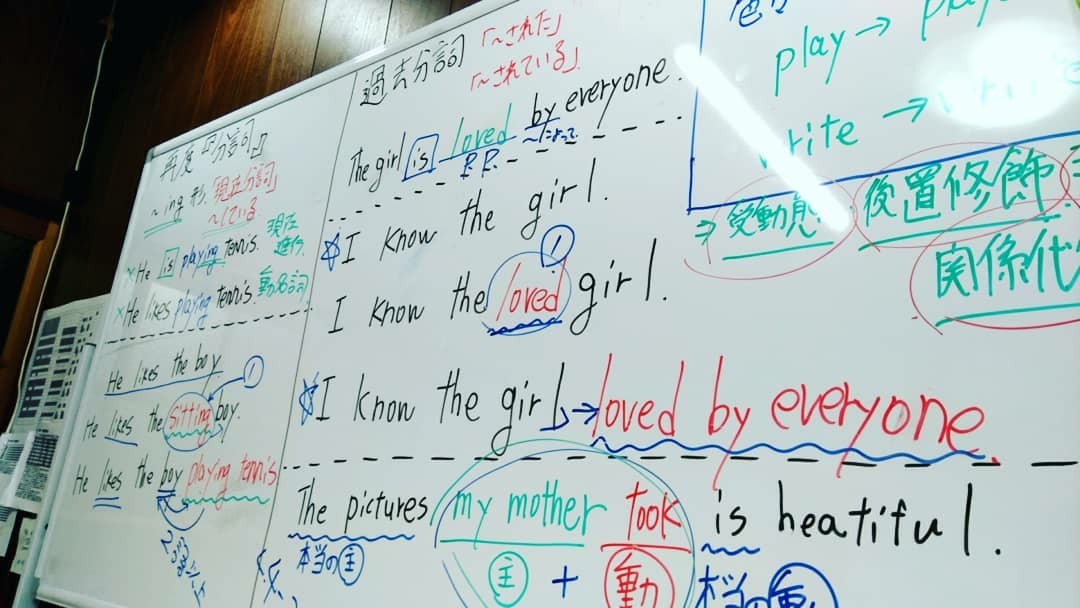 再度『分詞』
~ing形.「現在分詞」
~している
×He is playing tennis. 現在進行.
×He likes playing tennis. 動名詞
He likes the boy.
①
He likes the sitting boy.
He likes the boy playing tennis
過去分詞 「~された」
「~されている」
The girl is loved by everyone.
P.P. ~によって
☆I know the girl.
①
I know the loved girl.
☆I know the girl → loved by everyone.
The pictures my mother took is heatiful.
本当の主 主 + 動 本当の動
play →
write →
⇒受動態 後置修飾
関係代